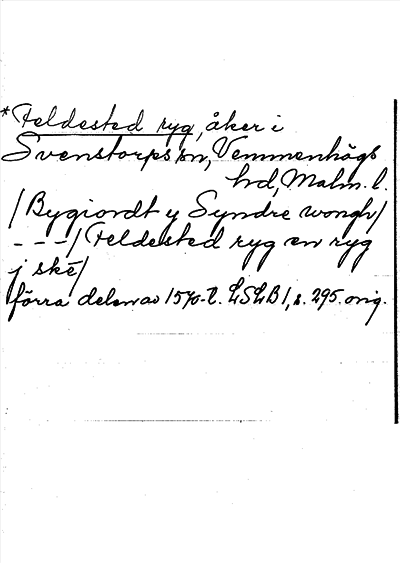 *Feldested ryg, åker i
Svenstorps sn, Vemmenhögs
hd, Malm. l.
/Bygiordt y Syndre wongh/
- - -/ Feldested ryg en ryg
j skē/
förra delen av 1570-t. LSLB 1, s. 295. orig.